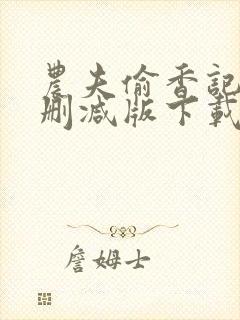 農夫偷香記
刪減版下載
詹姆士